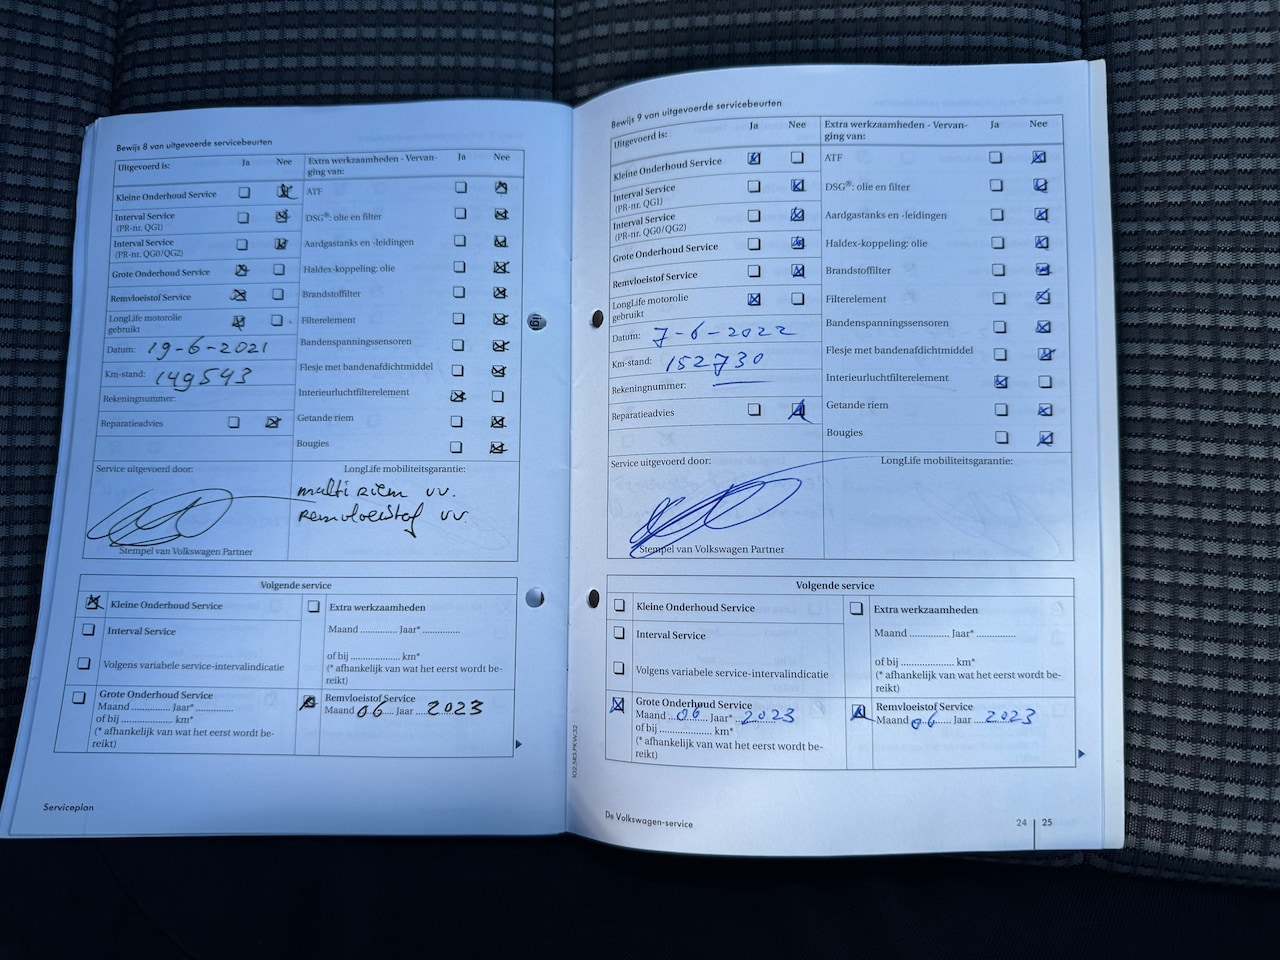 Bewijs 8 van uitgevoerde servicebeurten
Uitgevoerd is: Ja Nee
Kleine Onderhoud Service
Interval Service
(PR-nr. QG1)
Interval Service
(PR-nr. QG0/QG2)
Grote Onderhoud Service
Remvloeistof Service
LongLife motorolie
gebruikt
Datum: 19-6-2021
Km-stand: 149543
Rekeningnummer:
Reparatieadvies
Extra werkzaamheden - Vervan-
ging van: Ja Nee
ATF
DSG®: olie en filter
Aardgastanks en -leidingen
Haldex-koppeling: olie
Brandstoffilter
Filterelement
Bandenspanningssensoren
Flesje met bandenafdichtmiddel
Interieurluchtfilterelement
Getande riem
Bougies
Service uitgevoerd door:
Stempel van Volkswagen Partner
LongLife mobiliteitsgarantie:
multi riem vv.
Remvloeistof vv.
Volgende service
Kleine Onderhoud Service
Interval Service
Volgens variabele service-intervalindicatie
Grote Onderhoud Service
Maand .............. Jaar* ..............
of bij .................... km*
(* afhankelijk van wat het eerst wordt be-
reikt)
Extra werkzaamheden
Maand .............. Jaar* ..............
of bij .................... km*
(* afhankelijk van wat het eerst wordt be-
reikt)
Remvloeistof Service
Maand 06 Jaar 2023
Serviceplan
Bewijs 9 van uitgevoerde servicebeurten
Uitgevoerd is: Ja Nee
Kleine Onderhoud Service
Interval Service
(PR-nr. QG1)
Interval Service
(PR-nr. QG0/QG2)
Grote Onderhoud Service
Remvloeistof Service
LongLife motorolie
gebruikt
Datum: 7-6-2022
Km-stand: 152730
Rekeningnummer:
Reparatieadvies
Extra werkzaamheden - Vervan-
ging van: Ja Nee
ATF
DSG®: olie en filter
Aardgastanks en -leidingen
Haldex-koppeling: olie
Brandstoffilter
Filterelement
Bandenspanningssensoren
Flesje met bandenafdichtmiddel
Interieurluchtfilterelement
Getande riem
Bougies
Service uitgevoerd door:
Stempel van Volkswagen Partner
LongLife mobiliteitsgarantie:
Volgende service
Kleine Onderhoud Service
Interval Service
Volgens variabele service-intervalindicatie
Grote Onderhoud Service
Maand 06 Jaar* 2023
of bij .................... km*
(* afhankelijk van wat het eerst wordt be-
reikt)
Extra werkzaamheden
Maand .............. Jaar* ..............
of bij .................... km*
(* afhankelijk van wat het eerst wordt be-
reikt)
Remvloeistof Service
Maand 06 Jaar 2023
De Volkswagen-service
24 25